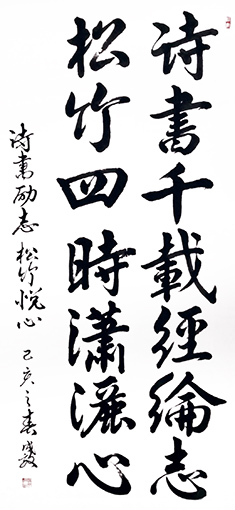 诗書千載經綸志
松竹四時瀟灑心
诗書励志松竹悦心 己亥之春